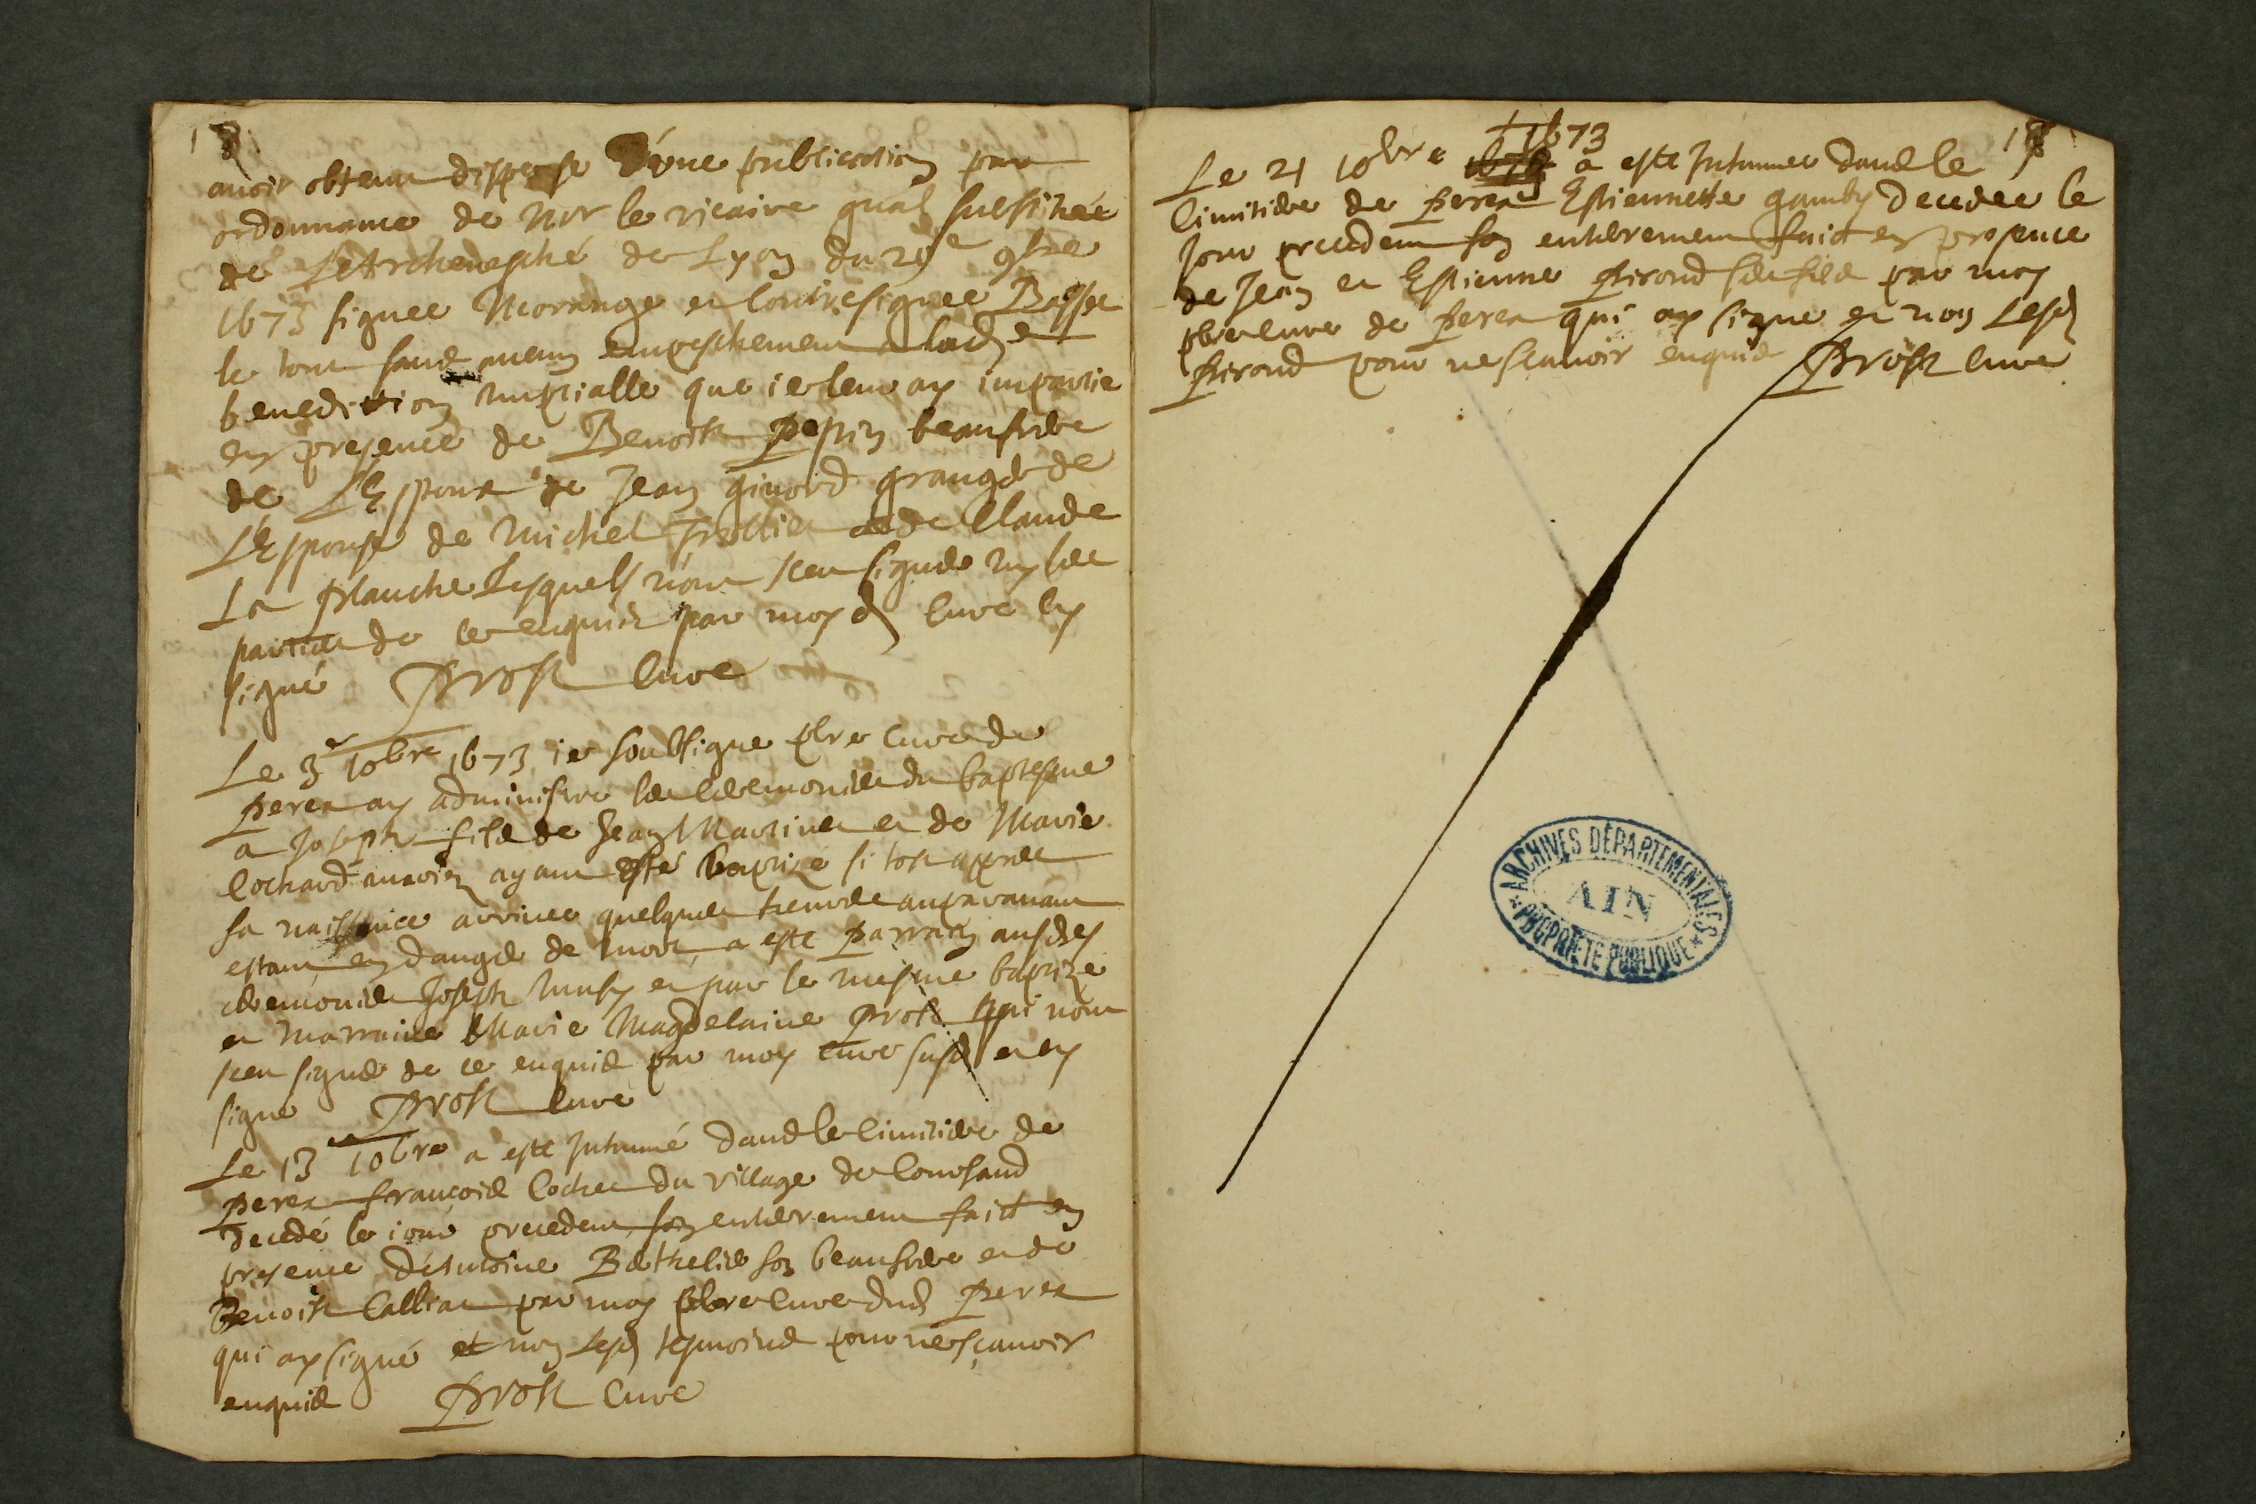 avoir obtenu dispense d'une publication par
ordonnance de Mor le vicaire gnal substitué
de L'Archevesché de Lyon du 29e 9bre
1673 signee Morange et contresignee Basset
le tout sans aucun empeschement a lad
benediction nuptialle que ie leur ay impartie
en presence de Benoist pepin beaufrere
de L'Espoux de Jean girord granger de
L'Espouse de Michel Trollier et de Claude
La planche Lesquels n'ont sceu signer ny les
parties de ce enquis par moy d curé ay
signé Prost Curé
Le 3e 10bre 1673 ie soubsigne pbre curé de
perex ay administré les ceremonies du baptesme
a Joseph fils de Jean Martinet et de Marie
Cochard mariez ayant esté baptizé si tost apres
sa naissance arrivee quelques heures auparavant
estant en danger de mort, a esté parrain ausdes
ceremonies Joseph et par le mesme baptize
et marraine Marie Magdelaine Prost qui n'ont
sceu signer de ce enquis par moy curé susd et ay
signé Prost Curé
Le 13 10bre a esté Inhumé dans le cimitiere de
perex francois Cochet du village de Consand
decedé le iour precedent son enterrement faict en
presence d'Antoine Bathelier son beaufrere et de
Benoist Calliat par moy pbre curé dud perex
qui ay signé et non Lesd tesmoins pour ne sçavoir
enquis Prost Curé
Le 21 10bre 1673 a esté Inhumee dans le 18
Cimitiere de perex Estiennette gamby decedee le
Jour precedent son enterrement faict en presence
de Jean et Estienne pirond ses fils par moy
pbre curé de perex qui ay signé et non Lesd
pirond pour ne scavoir enquis Prost Curé
ARCHIVES DÉPARTEMENTALES
AIN
PROPRIETE PUBLIQUE